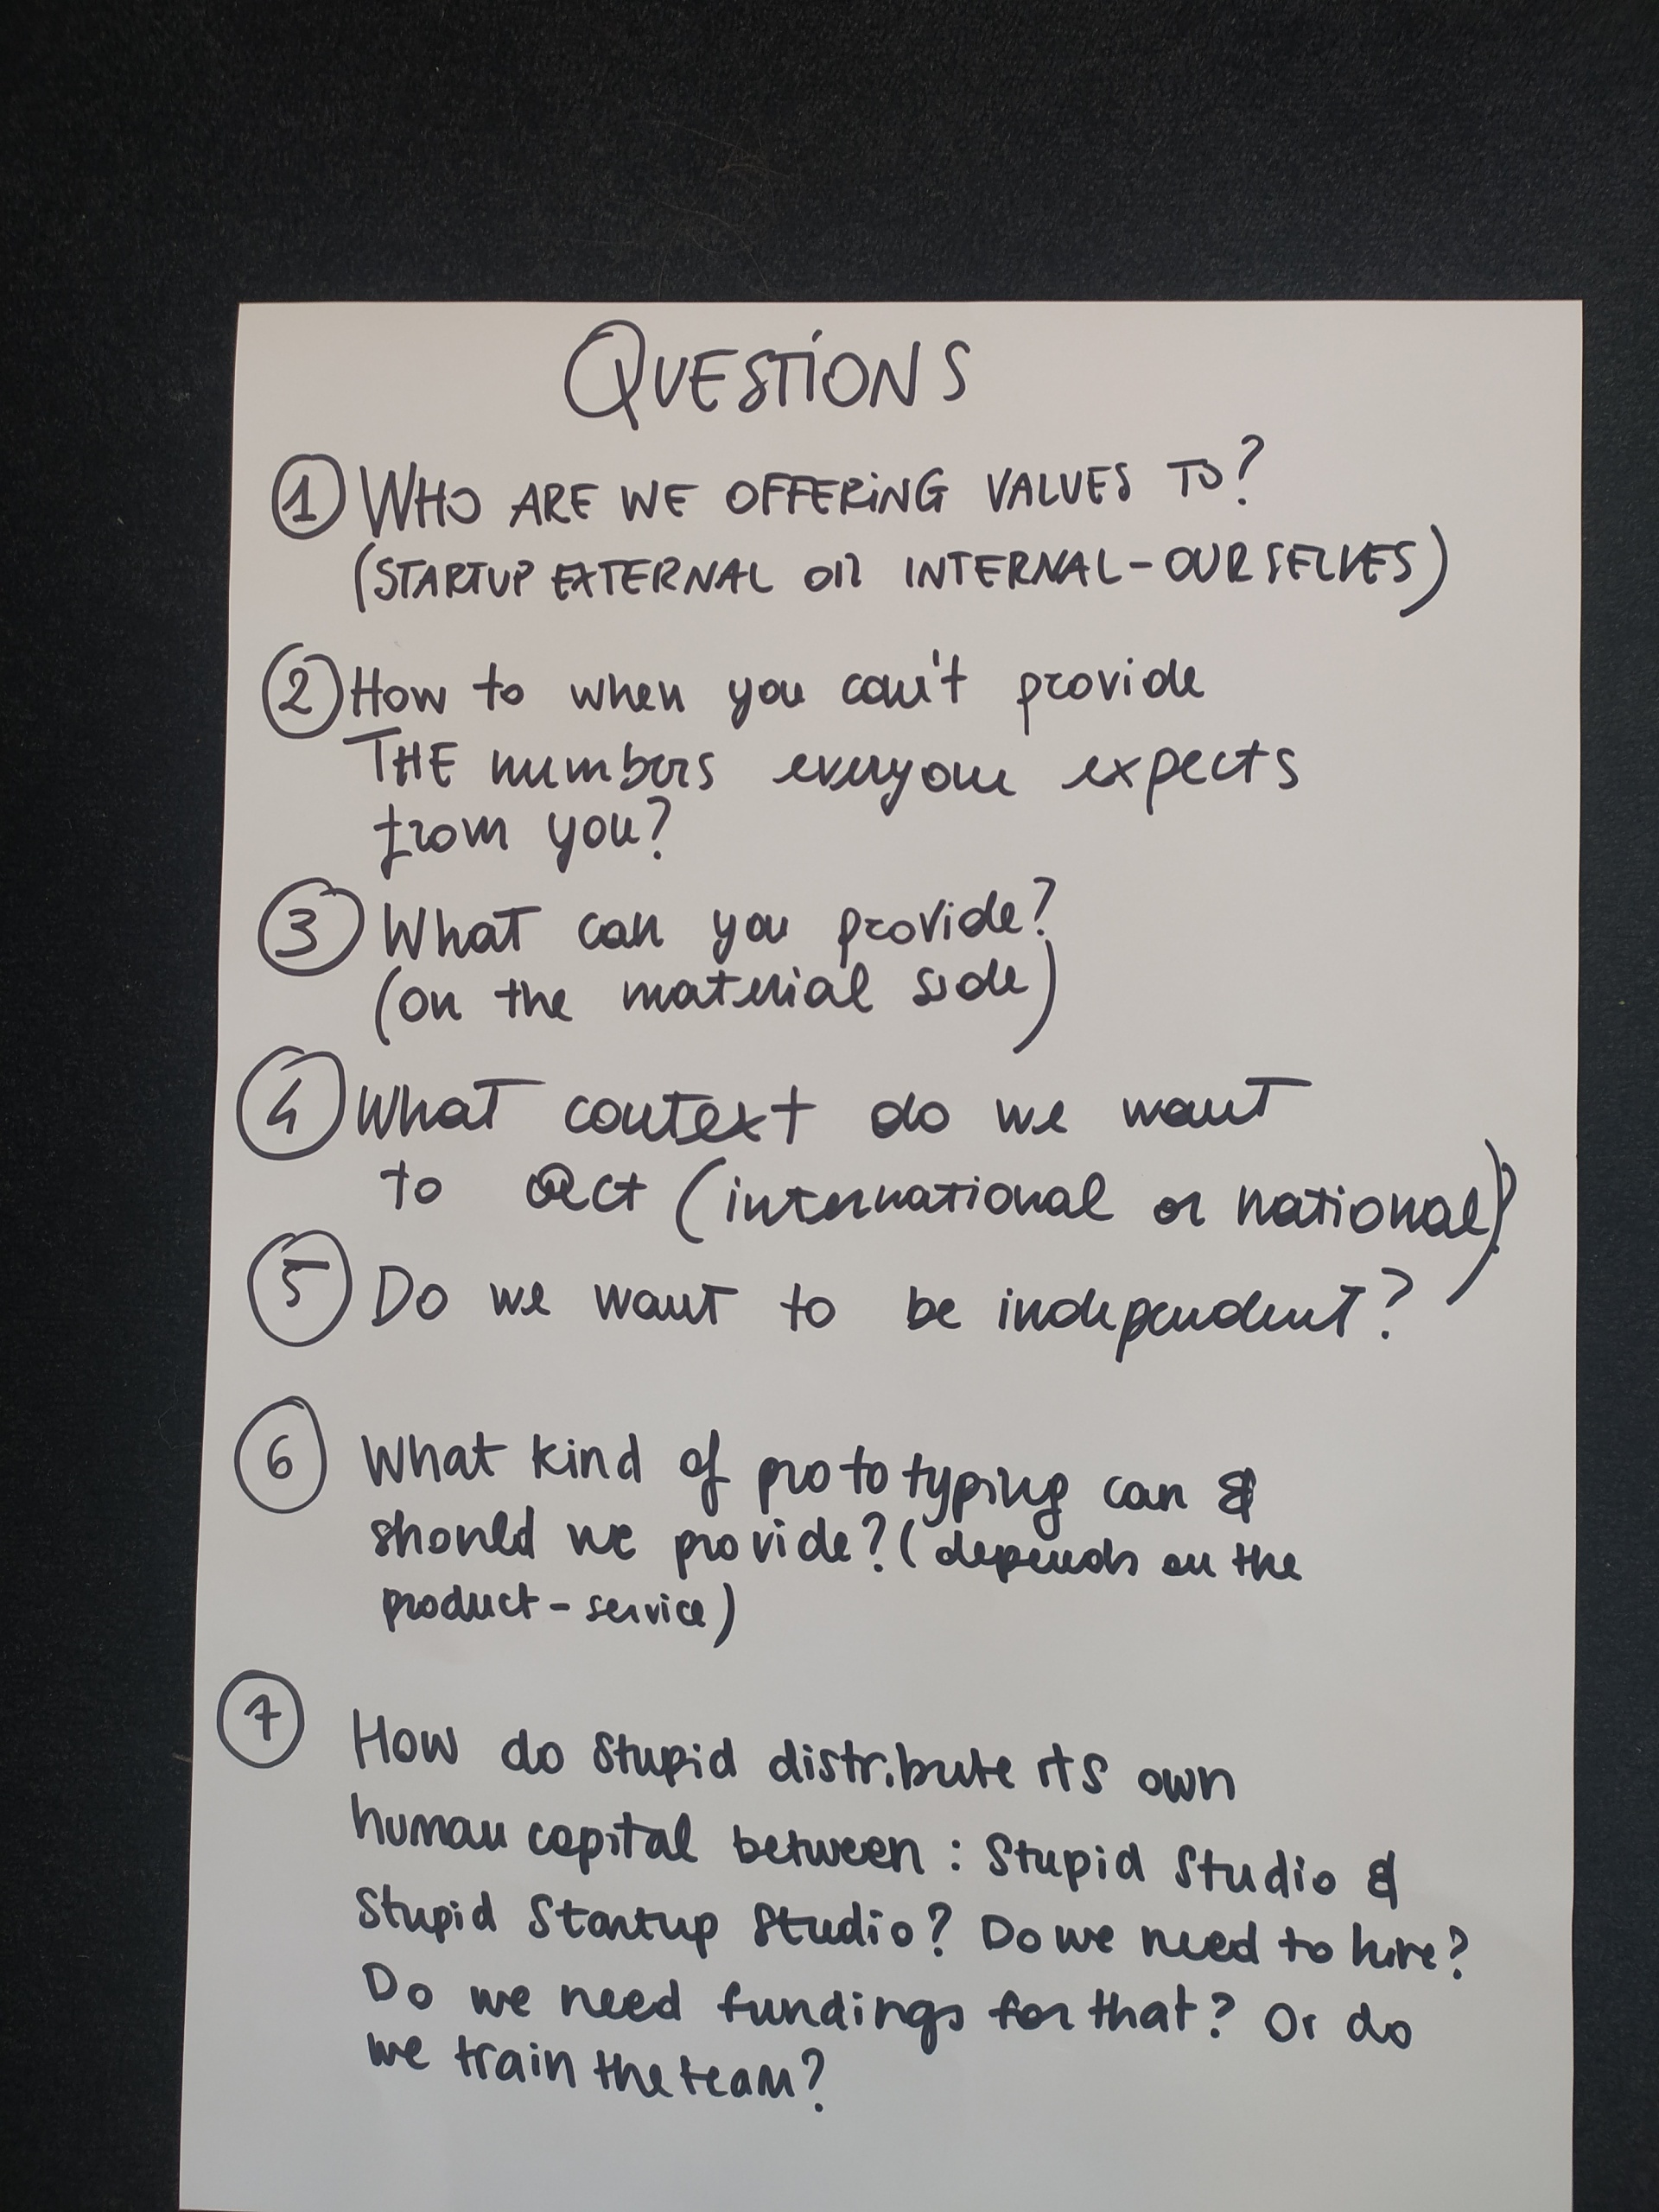 QUESTIONS
1 WHO ARE WE OFFERING VALUES TO?
(STARTUP EXTERNAL OR INTERNAL-OURSELVES)
2 How to when you can't provide
THE numbers everyone expects
from you?
3 What can you provide?
(on the material side)
4 What context do we want
to act (international or national)?
5 Do we want to be independent?
6 What kind of prototyping can &
should we provide? (depends on the
product-service)
7 How do Stupid distribute its own
human capital between: Stupid Studio &
Stupid Startup Studio? Do we need to hire?
Do we need fundings for that? Or do
we train the team?